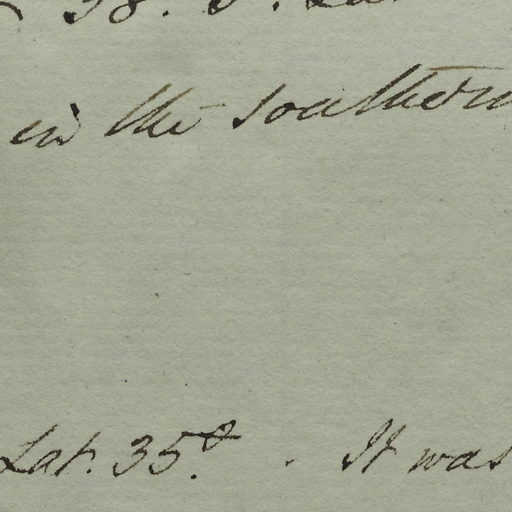 38. S. Lat
in the southern
Lat. 35.d . It was